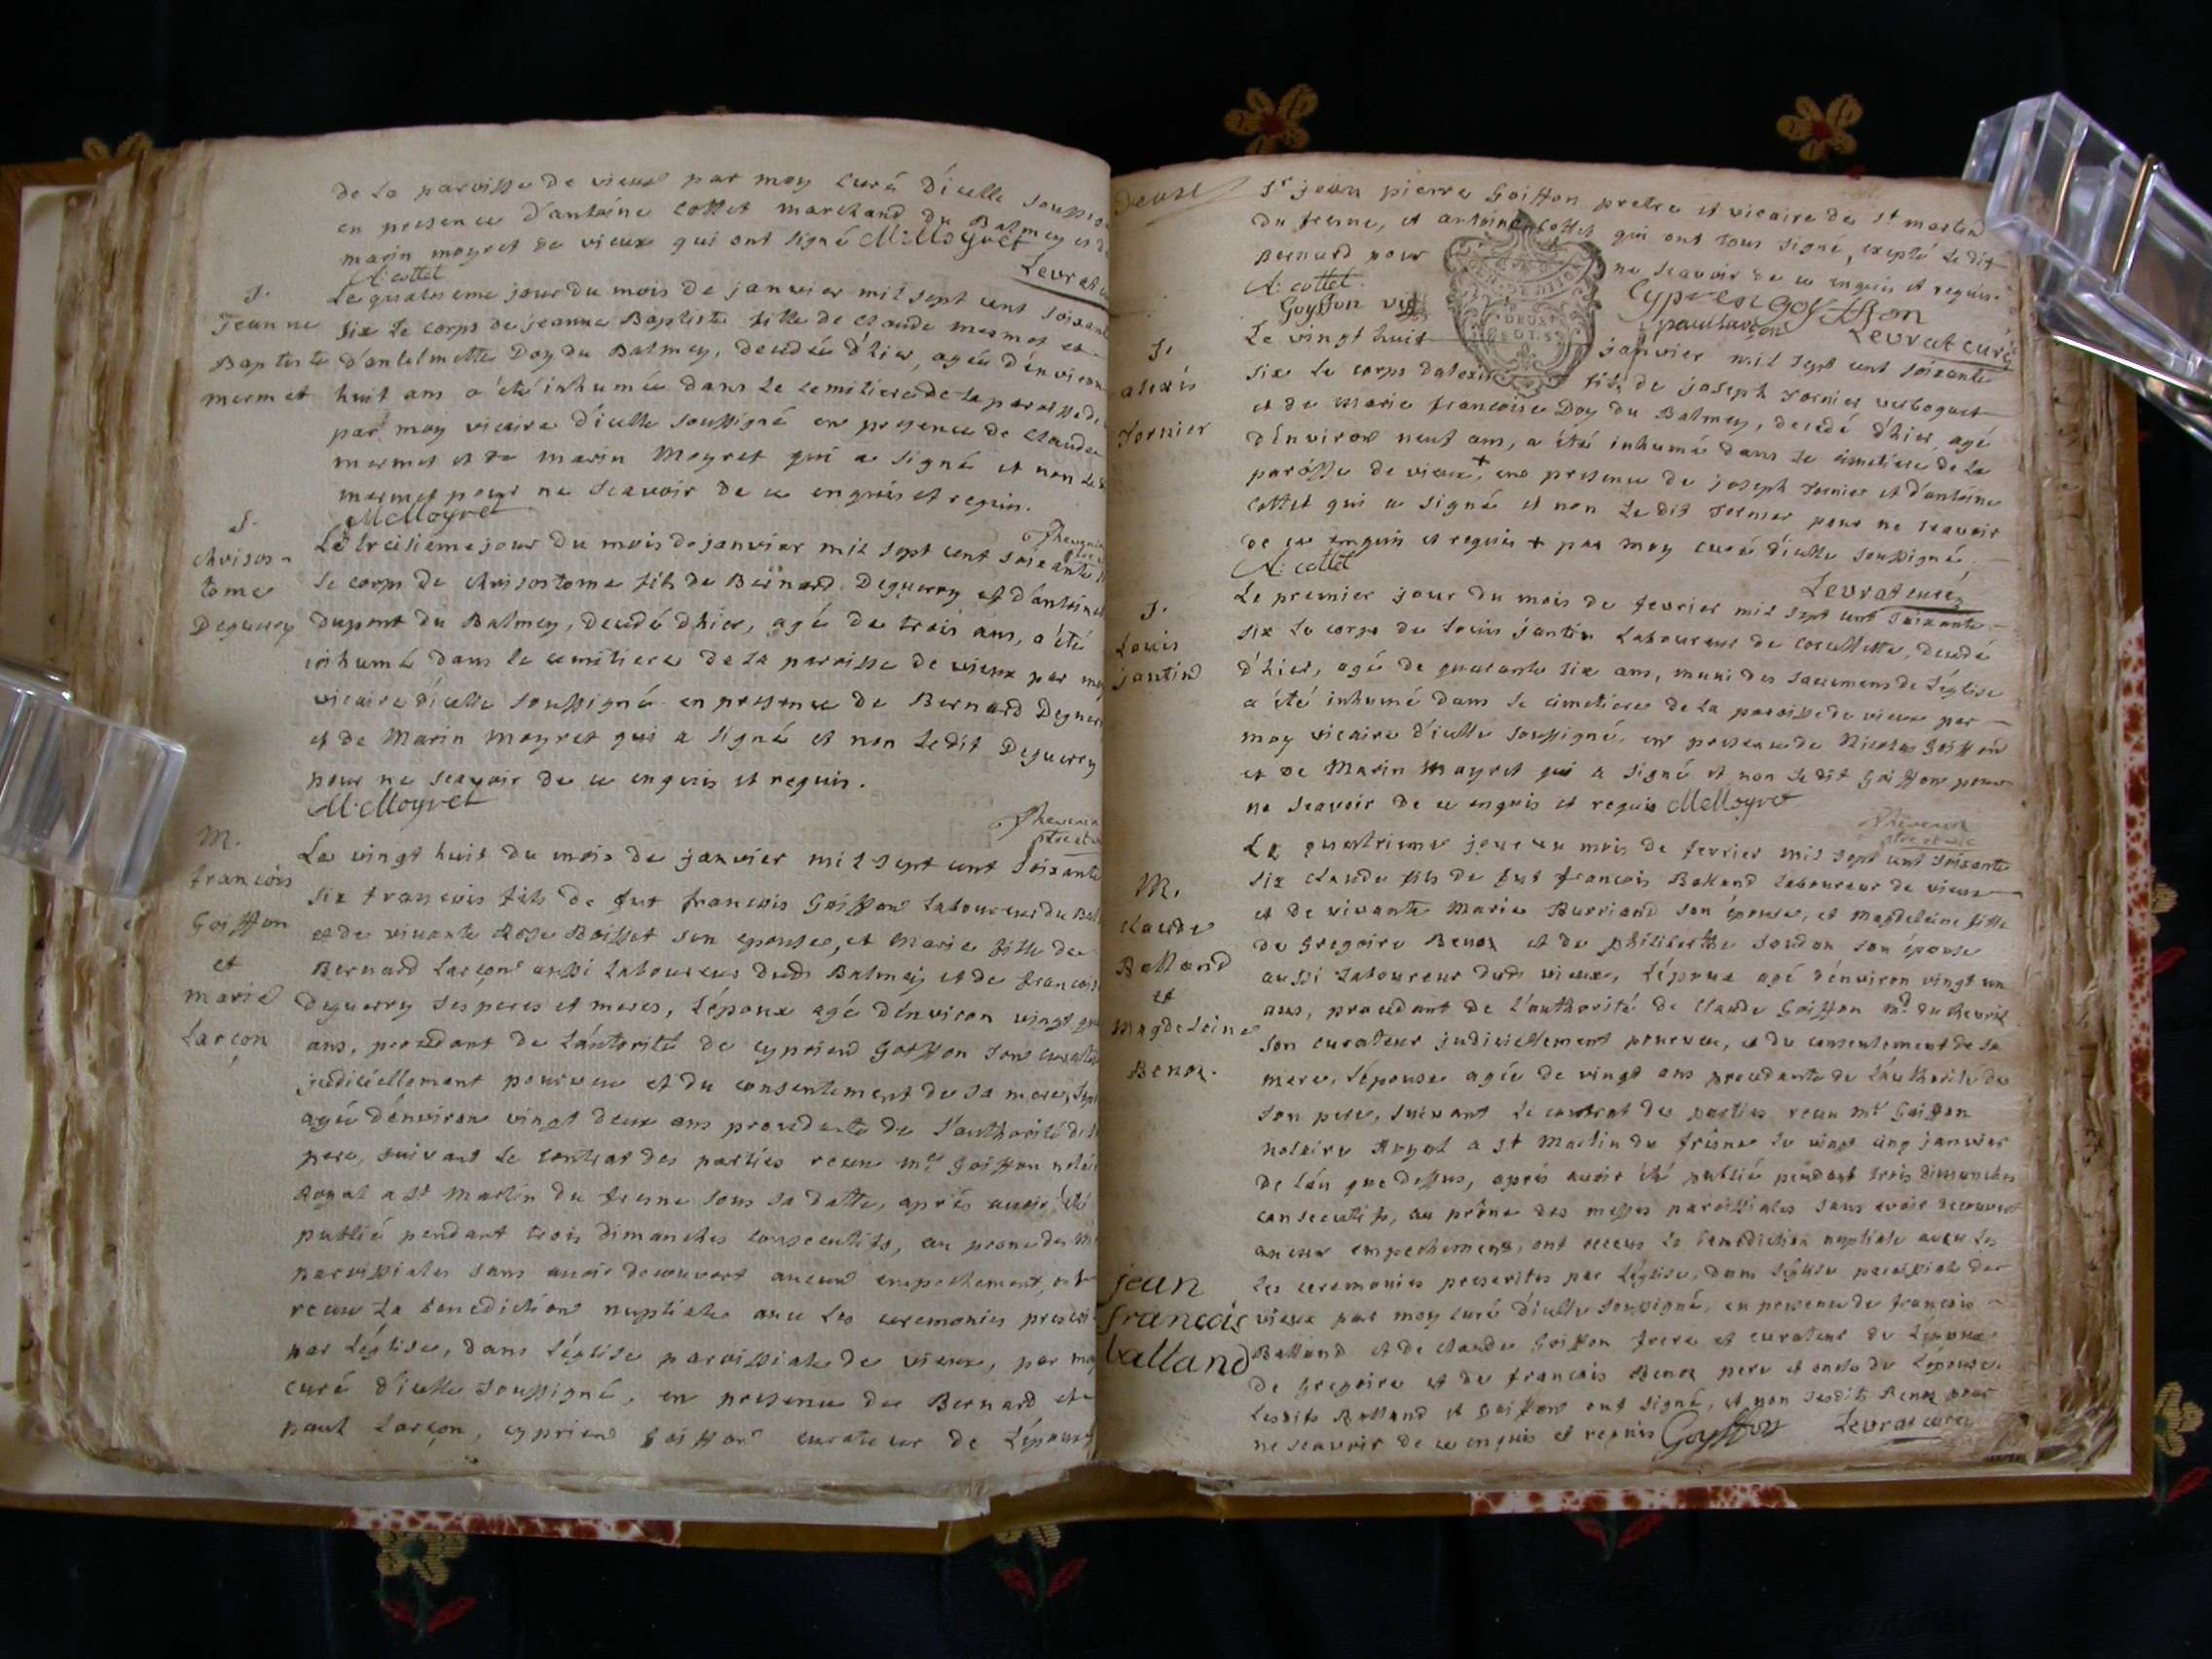 de la paroisse de vieux par moy curé d'icelle soussig
en presence d'antoine Cottet marchand du Balmey et d
marin moyret de vieux qui ont signé M: Moyret
A: cottet
Levrat c
S.
Jeanne
Baptiste
mermet
Le quatrieme jour du mois de janvier mil sept cent soixante
six le corps de jeanne Baptiste fille de claude mermet et
d'anthelmette Doy du Balmey, decedée d'hier, agée d'environ
huit ans a été inhumée dans le cemitiere de la paroisse de
par moy vicaire d'icelle soussigné en presence de claude
mermet et de marin Moyret qui a signé et non ledit
mermet pour ne sçavoir de ce enquis et requis.
M: Moyret
Thevenin
S.
chrisos-
tome
Deguerry
Le treisieme jour du mois de janvier mil sept cent soixante
le corps de chrisostome fils de Bernard Deguerry et d'antoinet
dupont du Balmey, decedé d'hier, agé de trois ans, a été
inhumé dans le cemitiere de la paroisse de vieux par moy
vicaire d'icelle soussigné en presence de Bernard Deguerry
et de Marin moyret qui a signé et non ledit Deguerry
pour ne sçavoir de ce enquis et requis.
M: Moyret
Thevenin
ptre et v
M.
francois
Goiffon
et
marie
Larçon
Le vingt huit du mois de janvier mil sept cent soixante
six francois fils de fut francois Goiffon laboureur du Bal
et de vivante Rose Boisset son epouse, et Marie fille de
Bernard Larçon aussi laboureur dudt Balmey et de francois
deguerry ses peres et meres, l'époux agé d'environ vingt
ans, procedant de l'autorité de cyprien Goiffon son curateur
judiciellement pourveu et du consentement de sa mere,
agée d'environ vingt deux ans procedante de l'authorité de s
pere, suivant le contrat des parties receu me Goiffon notair
Royal a St Martin du fresne sous sa datte, après avoir été
publié pendant trois dimanches consecutifs, au prone des m
paroissiales sans avoir decouvert aucun empechement, ont
receu la benediction nuptiale avec les ceremonies prescri
par l'église, dans l'église paroissiale de vieux, par moy
curé d'icelle soussigné, en presence de Bernard et
paul Larçon, cyprien Goiffon curateur de l'époux
Sr jean pierre Goiffon pretre et vicaire de St martin
du fresne, et antoine Cottet qui ont tous signé, excepté ledit
Bernard pour ne sçavoir de ce enquis et requis.
DEUX
SOLS
A: cottet
Cyprien goyffon
Goyffon vic
paul larçon
Levrat curé
S.
alexis
Tornier
Le vingt huit janvier mil sept cent soixante
six le corps d'alexis fils de joseph Tornier
et de Marie francoise Doy du Balmey, decedé d'hier, agé
d'environ neuf ans, a été inhumé dans le cimetiere de la
paroisse de vieux + en presence de joseph Tornier et d'antoine
Cottet qui a signé et non ledit Tornier pour ne sçavoir
de ce enquis et requis + par moy curé d'icelle soussigné,
A: cottet
Levrat curé
S.
Louis
jantin
Le premier jour du mois de fevrier mil sept cent soixante
six le corps de Louis jantin laboureur de decedé
d'hier, agé de quarante six ans, muni des sacremens de l'église
a été inhumé dans le cimetiere de la paroisse de vieux par
moy vicaire d'icelle soussigné, en presence de Nicolas Goiffon
et de Marin Moyret qui a signé et non ledit Goiffon pour
ne sçavoir de ce enquis et requis M: Moyret
Thevenin
ptre et vic
M.
claude
Balland
et
Magdeleine
Benoz.
Le quatrieme jour du mois de fevrier mil sept cent soixante
six claude fils de fut francois Balland laboureur de vieux
et de vivante Marie Burriand son épouse, et Magdeleine fille
de Gregoire Benoz et de philiberthe Sondon son épouse
aussi laboureur dudt vieux, l'époux agé d'environ vingt un
ans, procedant de l'authorité de Claude Goiffon md du
son curateur judiciellement pourveu, et du consentement de sa
mere, l'épouse agée de vingt ans procedante de l'authorité de
son pere, suivant le contrat des parties receu me Goiffon
notaire Royal a St Martin du fresne le vingt cinq janvier
de l'an que dessus, aprés avoir été publié pendant trois dimanches
consecutifs, au prône des messes paroissiales sans avoir decouvert
aucun empechement, ont receus la benediction nuptiale avec les
les ceremonies prescrites par l'église, dans l'église paroissiale de
vieux par moy curé d'icelle soussigné, en presence de francois
Balland et de claude Goiffon frere et curateur de l'époux
de Gregoire et de francois Benoz pere et oncle de l'épouse
lesdits Balland et Goiffon ont signé, et non lesdits Benoz pour
ne sçavoir de ce enquis et requis Goyffon Levrat curé
jean
francois
balland